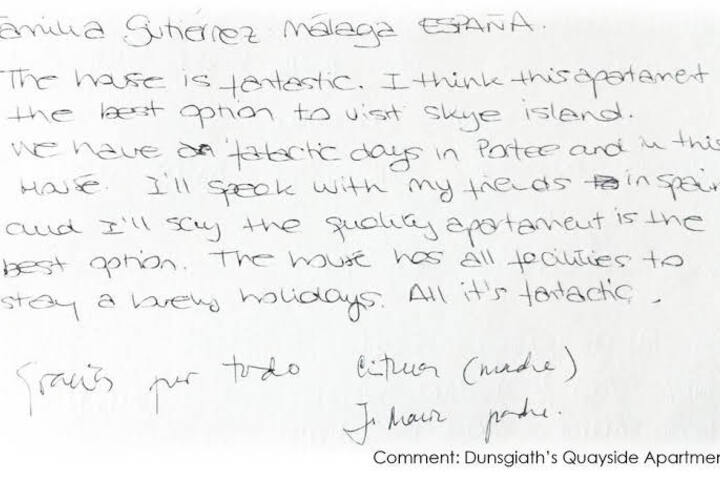 amilia Gutiérrez Málaga ESPAÑA.
The house is fantastic. I think this apartamet
the best option to visit skye island.
We have fatactic days in Portee and in this
House. I'll speak with my friends in spain
and I'll say the quality apartament is the
best option. The house has all facilities to
stay a lovely holidays. All it's fantactic.
Gracias por todo (madre)
padre.
Comment: Dunsgiath's Quayside Apartmen